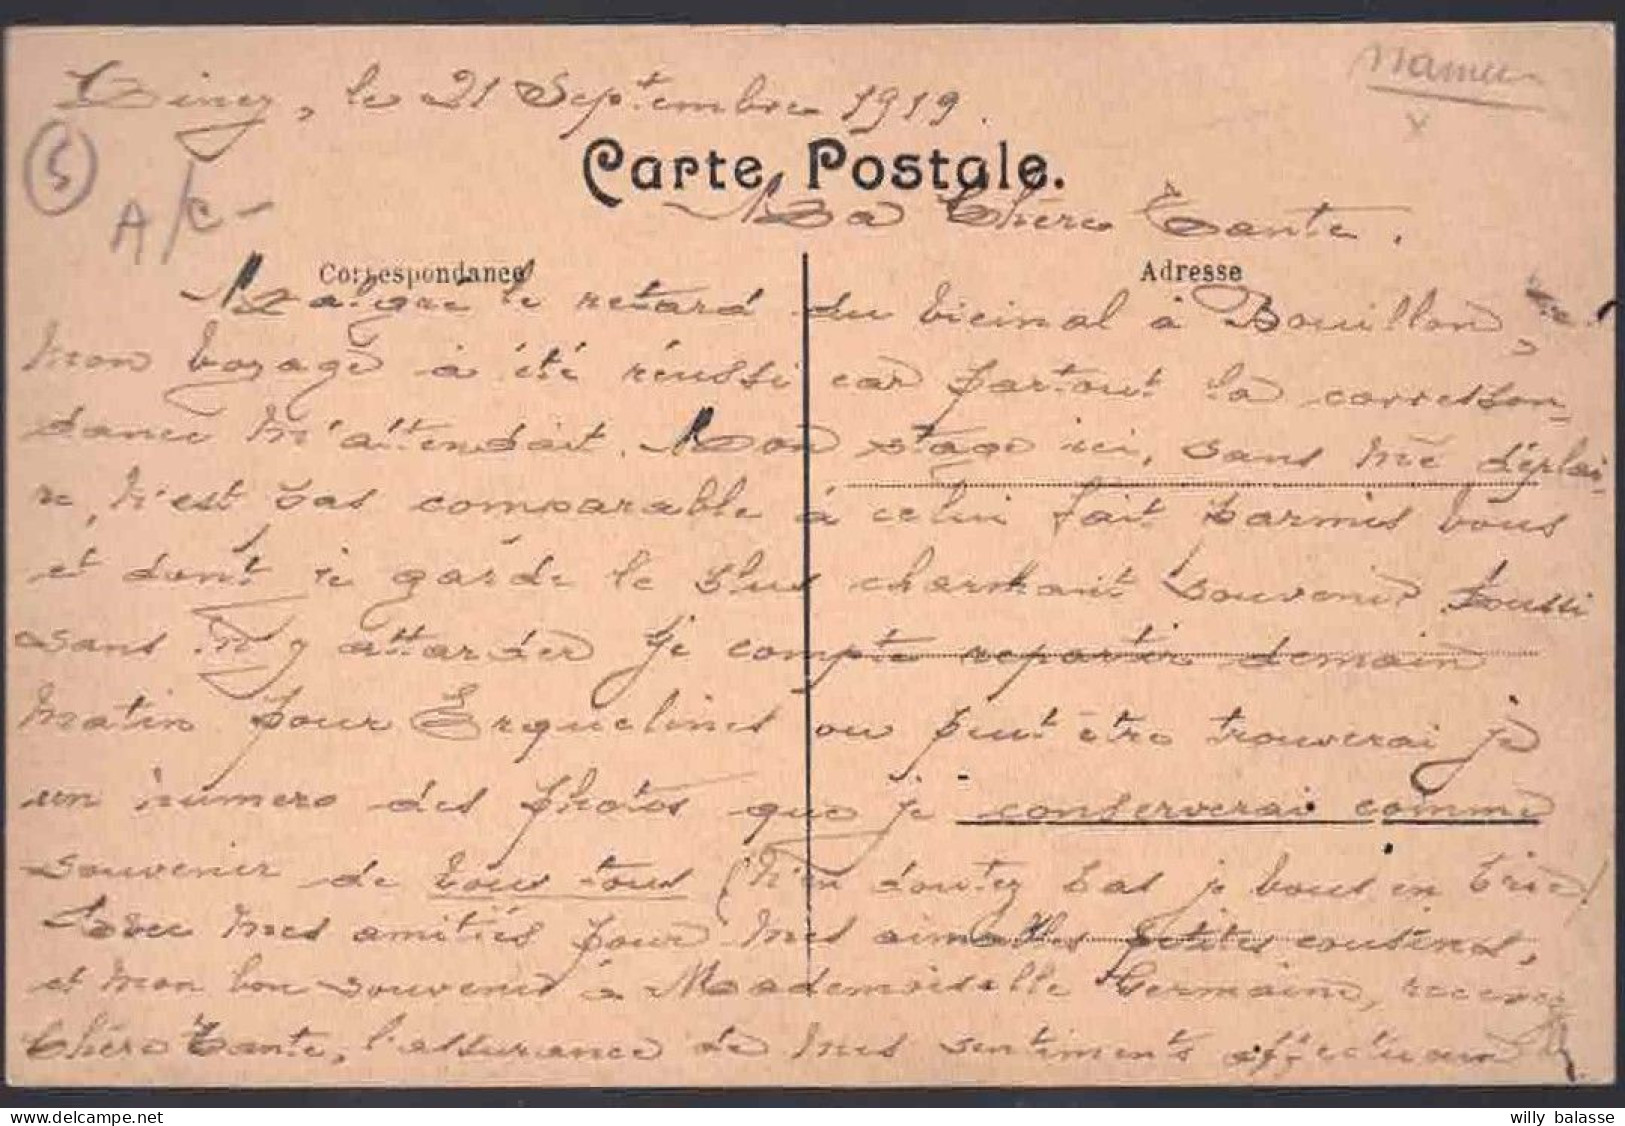 Namur
Ciney, le 21 Septembre 1919.
5
A/C -
Carte Postale.
Ma Chère Tante.
Correspondance
Adresse
Malgré le retard du vicinal à Bouillon,
mon voyage à été réussi car partout la correspon-
dance m'attendait. Mon stage ici, sans me déplai-
re, n'est pas comparable à celui fait parmis vous
et dont je garde le plus charmant souvenir. Aussi
sans m'y attarder je compte repartir demain
matin pour Erquelines ou peut être trouverai je
un numéro des photos que je conserverai comme
souvenir de vous tous (n'en doutez pas je vous en prie)
Avec mes amitiés pour mes aimables petites cousines,
et mon bon souvenir à Mademoiselle Germaine, recevez
Chère Tante, l'assurance de mes sentiments affectueux
willy balasse